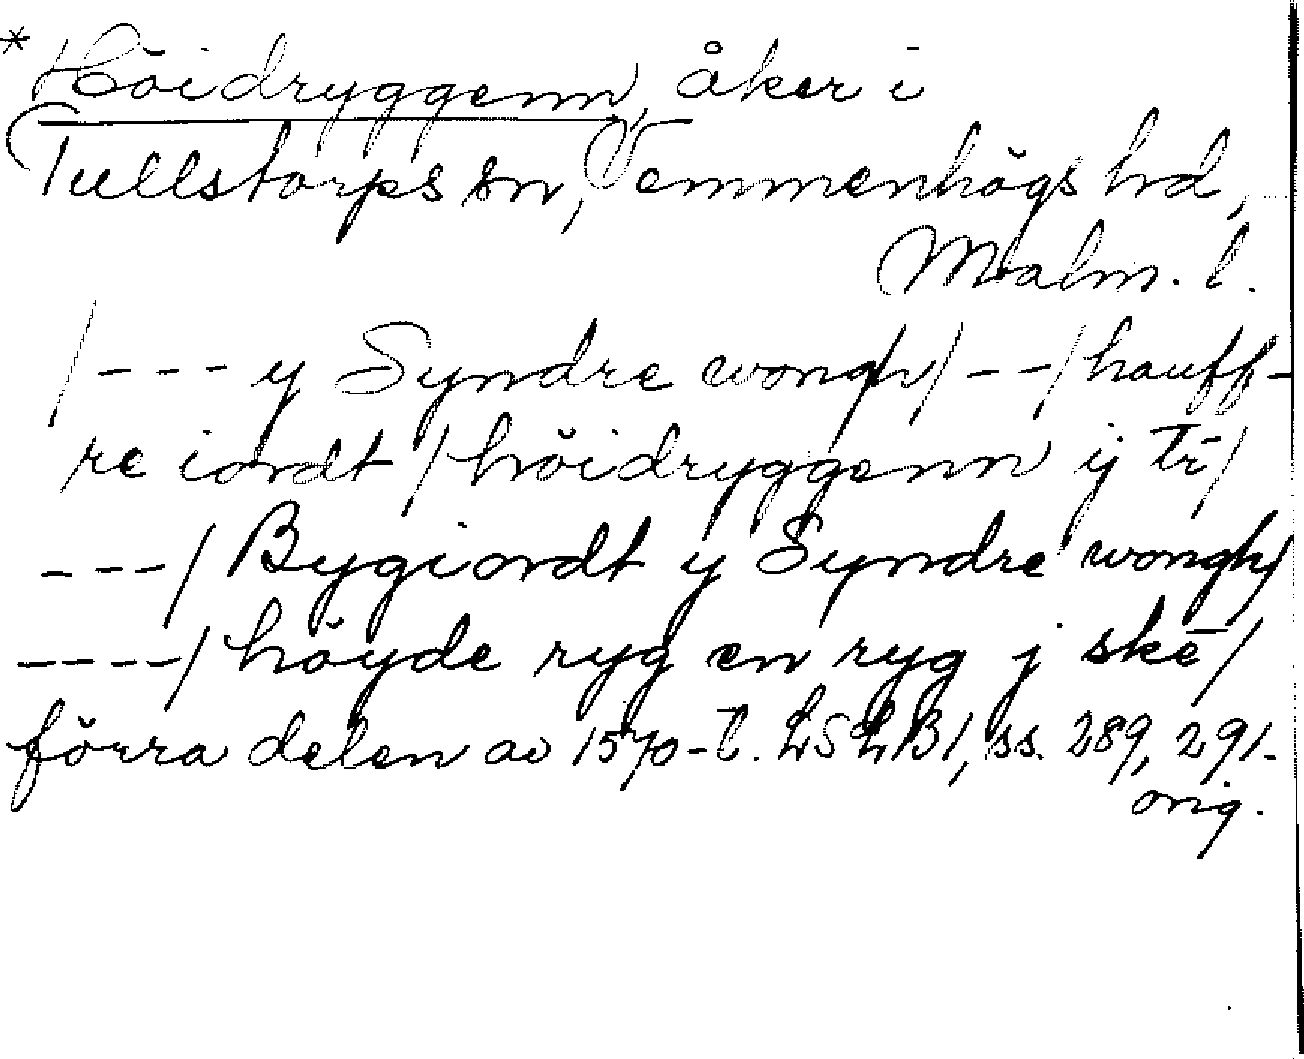 *Höidryggenn, åker i
Tullstorps sn, Vemmenhögs hd,
Malm. l.
/--- y Syndre wongh/--/hauff-
re iordt/höidryggenn ij tr̄/
---/Bygiordt y Syndre wongh/
----/höyde ryg en ryg j skē/
förra delen av 1570-t. LSLB1, ss. 289, 291.
orig.